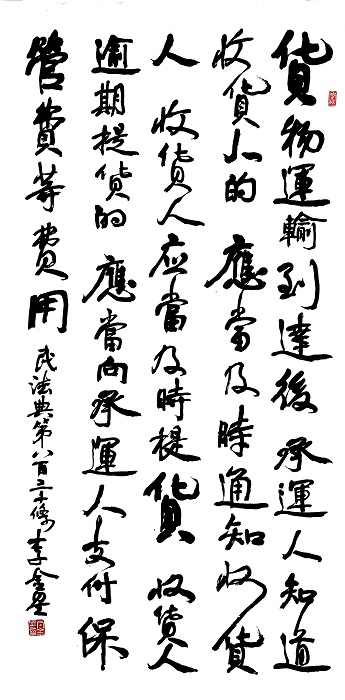 貨物運輸到達後承運人知道
收貨人的 應當及時通知收貨
人 收货人应當及時提貨 收货人
逾期提货的 應當向承運人支付保
管費等費用 民法典第八百三十條 李金